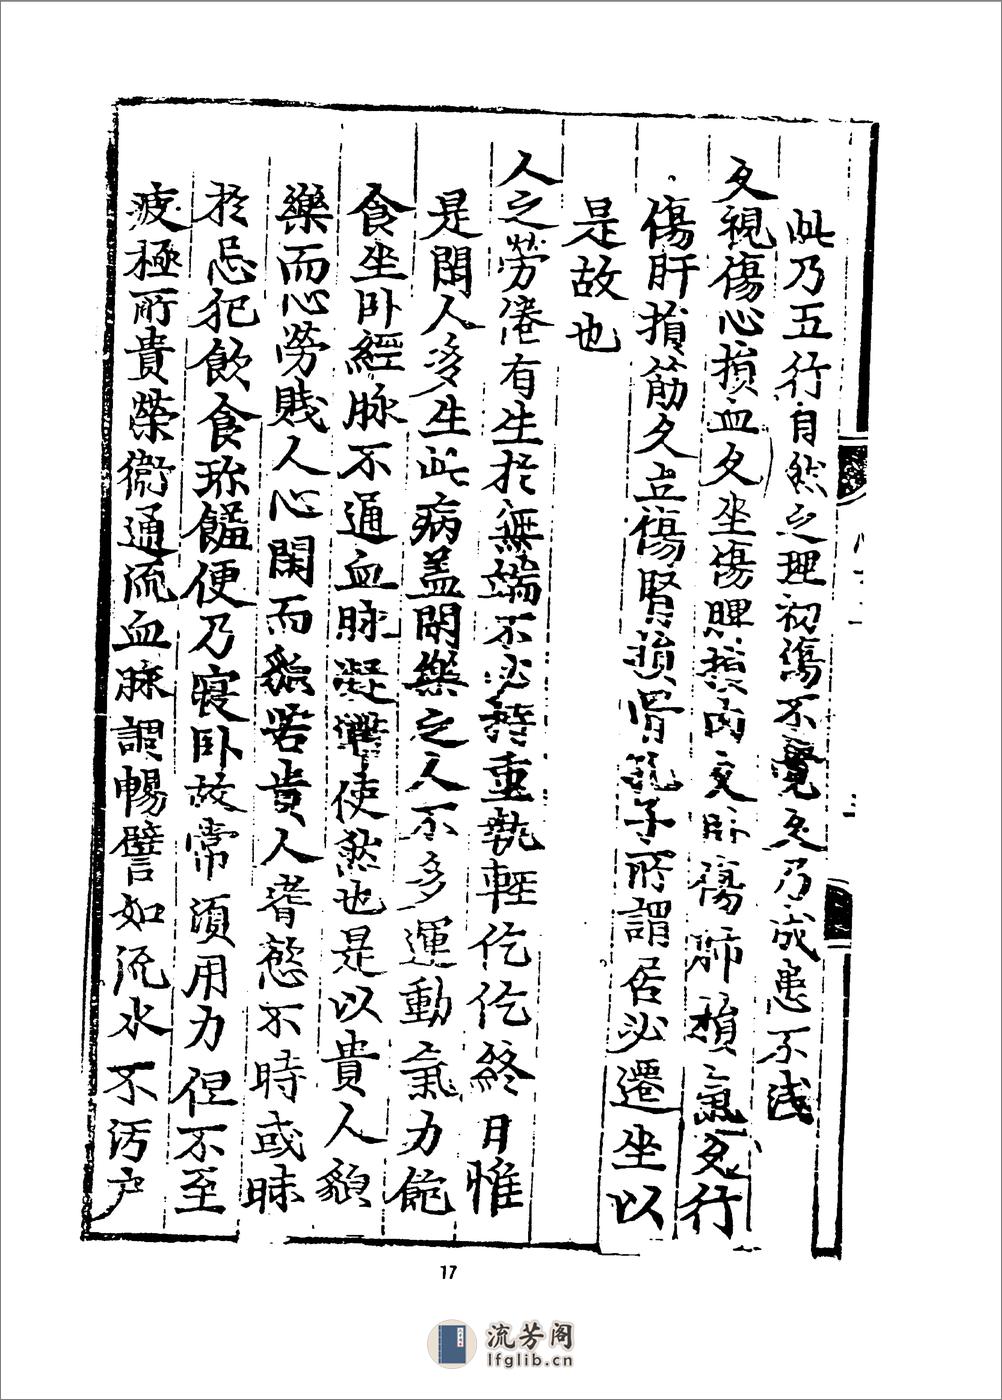 此乃五行自然之理初傷不覺久乃成患不浅
久視傷心損血久坐傷脾損肉久臥傷肺損氣久行
傷肝損筋久立傷腎損骨孔子所謂居必遷坐以
是故也
人之勞倦有生於無端不必持重執輕仡仡終日惟
是閑人多生此病盖閑樂之人不多運動氣力飽
食坐卧經脉不通血脉凝滯使然也是以貴人貌
樂而心勞賤人心閑而貌若貴人嗜慾不時或昧
於忌犯飲食珎饈便乃寝卧故常須用力但不至
疲極所貴榮衛通流血脉調暢譬如流水不污户
17
流芳阁
lfglib.cn